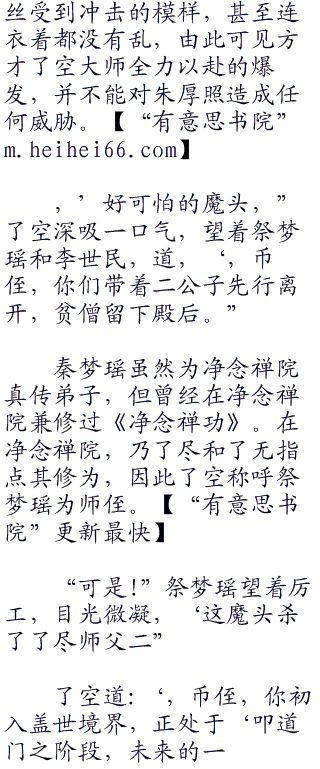 丝受到冲击的模样，甚至连
衣着都没有乱，由此可见方
才了空大师全力以赴的爆
发，并不能对朱厚照造成任
何威胁。【“有意思书院”
m.heihei66.com】
，’好可怕的魔头，”
了空深吸一口气，望着祭梦
瑶和李世民，道，‘，币
侄，你们带着二公子先行离
开，贫僧留下殿后。”
秦梦瑶虽然为净念禅院
真传弟子，但曾经在净念禅
院兼修过《净念禅功》。在
净念禅院，乃了尽和了无指
点其修为，因此了空称呼祭
梦瑶为师侄。【“有意思书
院”更新最快】
“可是！”祭梦瑶望着厉
工，目光微凝，‘这魔头杀
了了尽师父二”
了空道：‘，币侄，你初
入盖世境界，正处于‘叩道
门之阶段，未来的一